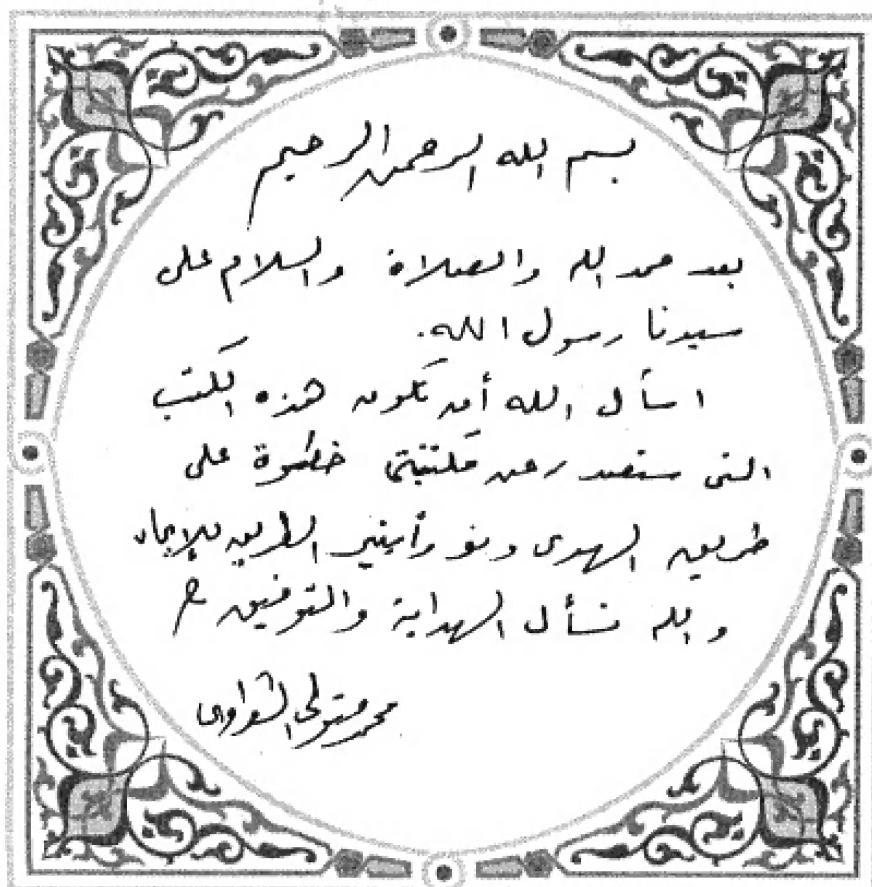 بسم الله الرحمن الرحيم
بعد حمد الله والصلاة والسلام على
سيدنا رسول الله.
اسأل الله أن تكون هذه الكتب
التى ستصدر عن مكتبتى خطوة على
طريق الهدى ونورأ ينير الطريق للإيمان
والله نسأل الهداية والتوفيق
محمد متولى الشعراوى